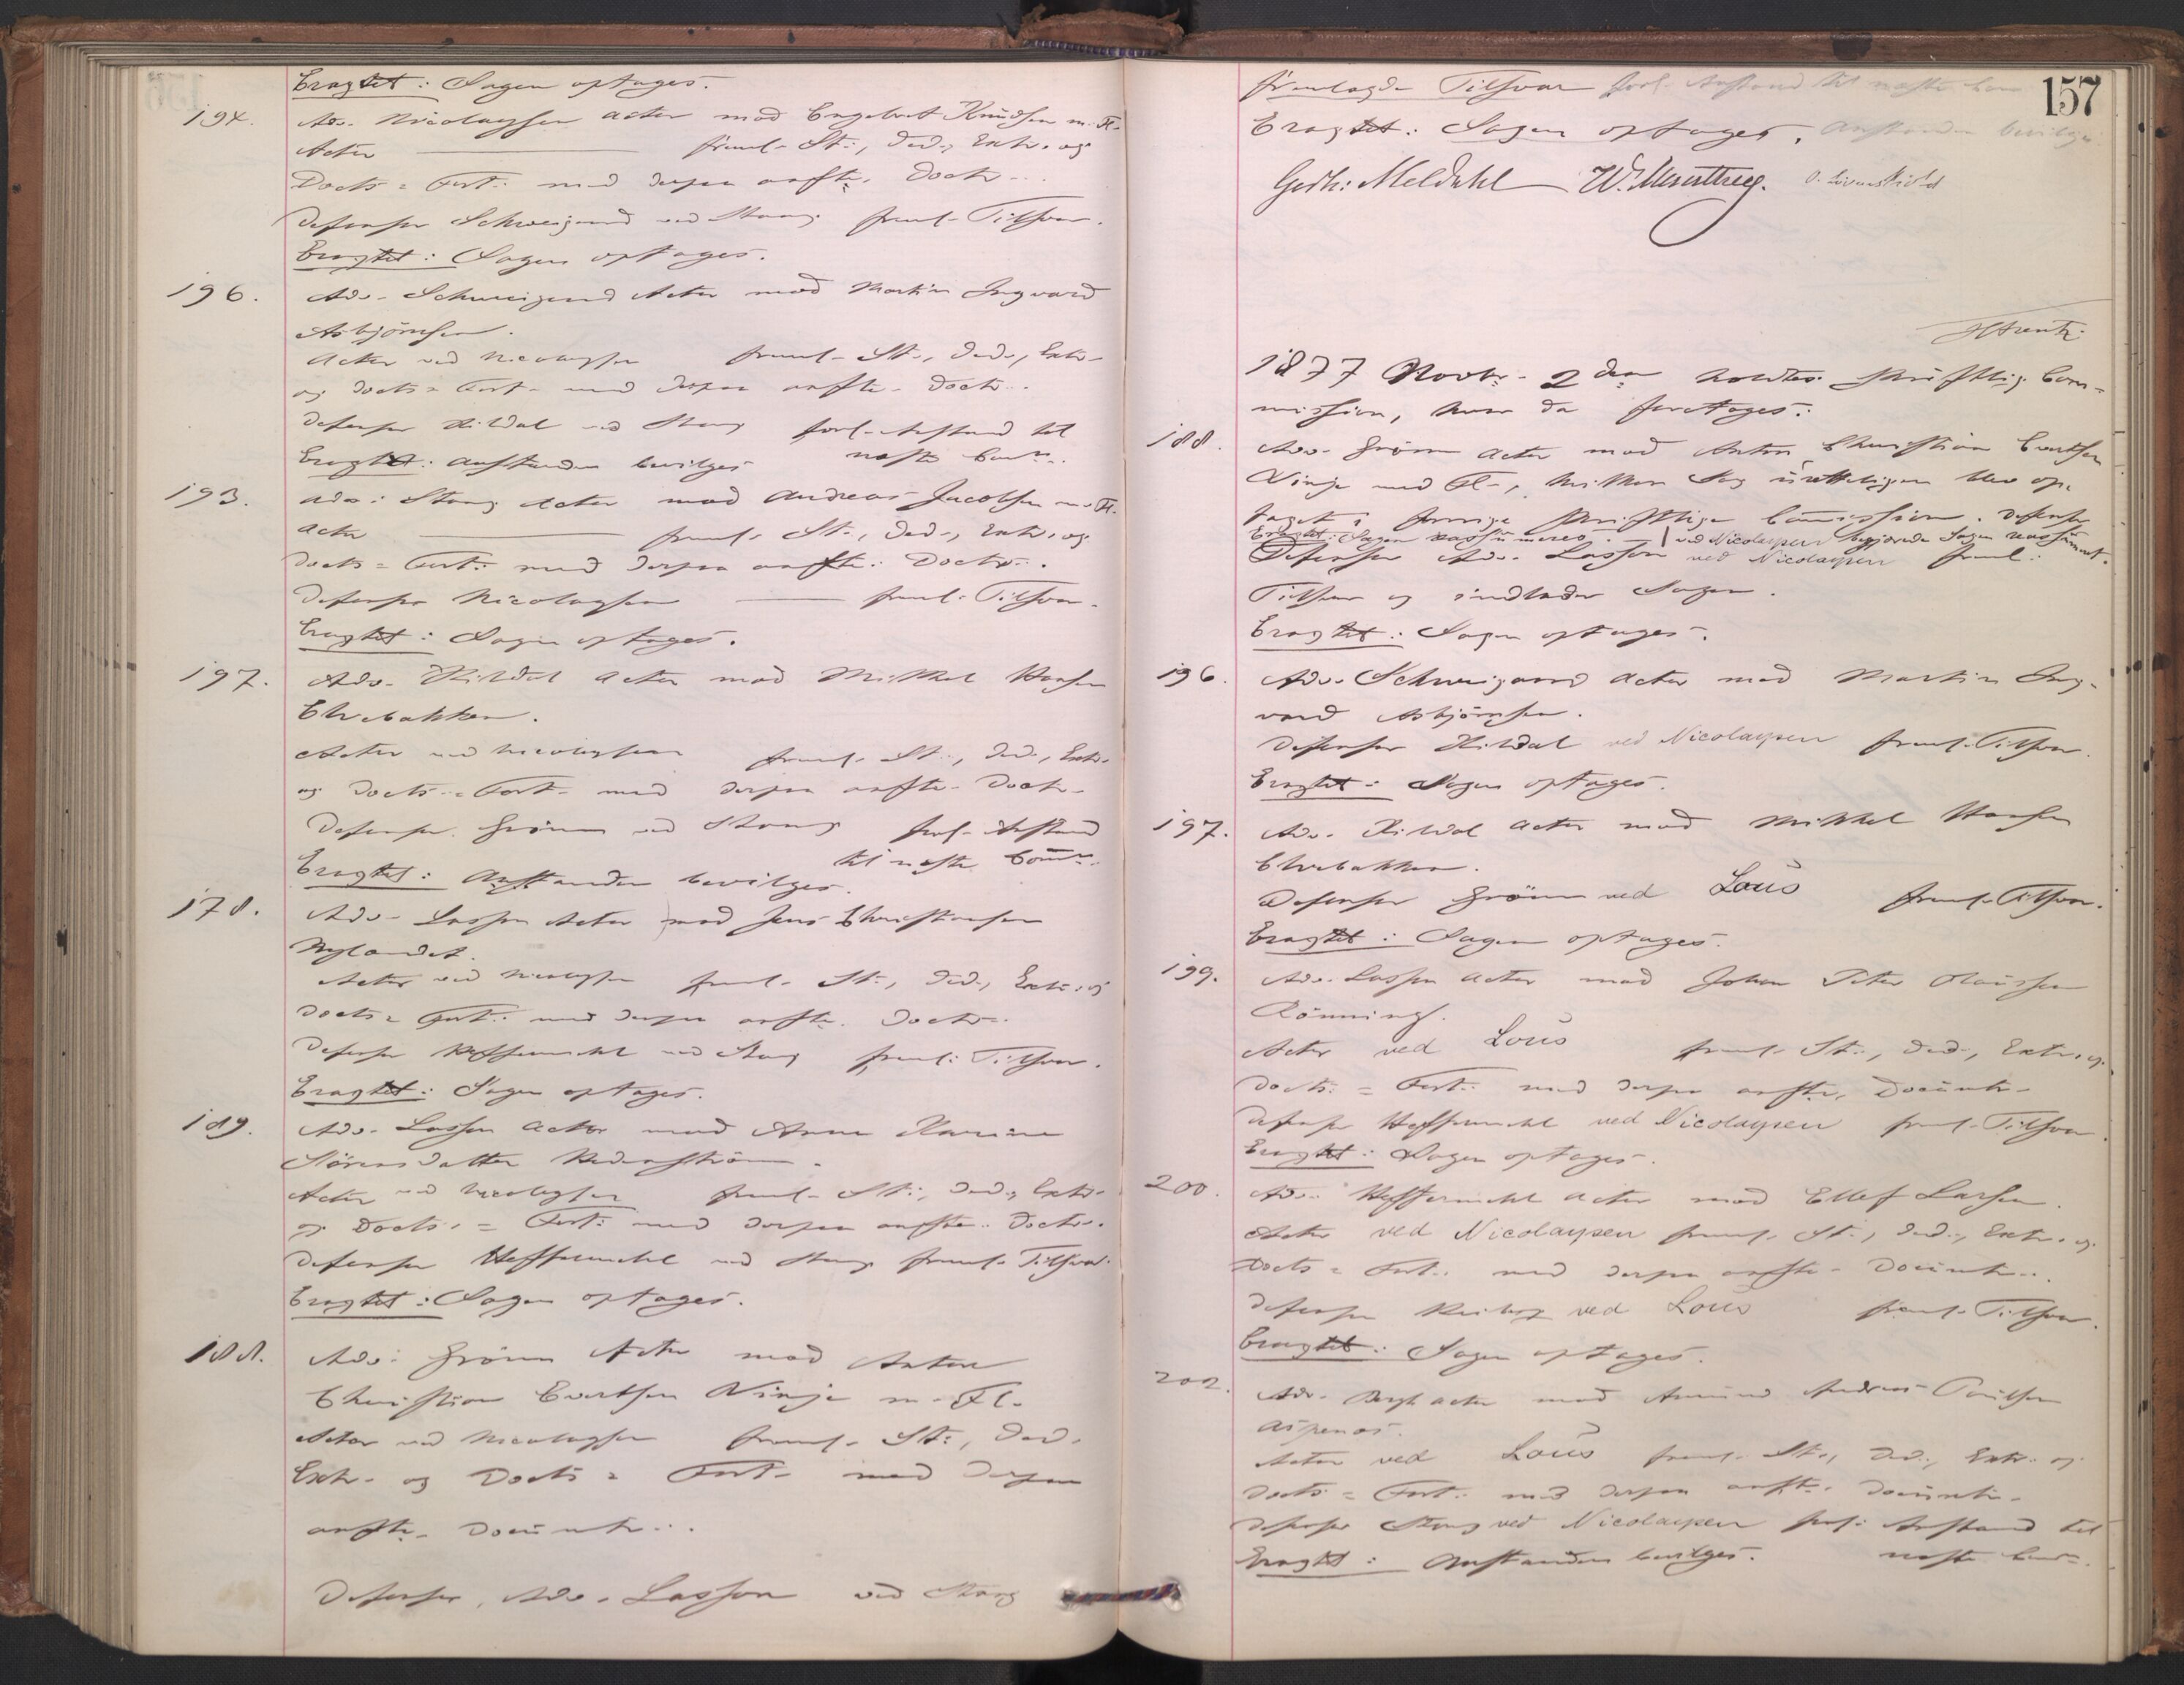 Eragtet: Sagen optages.
194. Adv. Nicolaysen Actor mod Engebret Knudsen m. Fl.
Actor freml. St:, Ded:, Extr. og
Docts = Fort: med derpaa anfte. Doctr..
Defensor Schweigaard ved Stang freml. Tilsvar.
Eragtet: Sagen optages.
196. Adv. Schweigaard Actor mod Martin Ingvard
Asbjörnsen.
Actor ved Nicolaysen freml. St:, Ded:, Extr.
og Docts = Fort. med derpaa anfte. Doctr..
Defensor Hildal ved Stang forl. Anstand til
næste Com..
Eragtet: Anstanden bevilges
193. Adv: Stang Actor mod Andreas Jacobsen m. Fl.
Actor freml. St:, Ded:, Extr. og
Docts = Fort: med derpaa anfte: Doctr..
Defensor Nicolaysen freml: Tilsvar.
Eragtet: Sagen optages.
197. Adv. Hildal Actor mod Mikkel Hansen
Elvebakken.
Actor ved Nicolaysen freml. St:, Ded:, Extr.
og Docts. = Fort. med derpaa anfte. Doctr.
Defensor Grönn ved Stang forl. Anstand
til næste Comm..
Eragtet: Anstanden bevilges.
178. Adv. Lasson Actor mod Jens Christiansen
Nylandet.
Actor ved Nicolaysen freml. St:, Ded:, Extr. og
Docts = Fort: med derpaa anfte. Doctr..
Defensor Heffermehl ved Stang freml: Tilsvar.
Eragtet: Sagen optages.
189. Adv. Lasson Actor mod Anne Karine
Sörensdatter Hedenström.
Actor ved Nicolaysen freml. St:, Ded:, Extr.
og Docts. = Fort: med derpaa anfte. Doctr.
Defensor Heffermehl ved Stang freml. Tilsvar.
Eragtet: Sagen optages.
188. Adv: Grönn Actor mod Anton
Christian Evertsen Vinje m. Fl.
Actor ved Nicolaysen freml. St:, Ded.
Extr. og Docts = Fort. med derpaa
anfte. Documtr..
Defensor, Adv. Lasson ved Stang
157
fremlagde Tilsvar forl. Anstand til næste Com
Eragtet: Sagen optages. Anstanden bevilges
Gerh: Meldahl W. Munthe
1877 Novbr. 2den holdtes skriftlig Com-
mission, hvor da foretoges:
188. Adv. Grönn Actor mod Anton Christian Evertsen
Vinje med Fl., hvilken Sag uretteligen blev op-
taget i forrige skriftlige Commission. Defensor
ved Nicolaysen begjærede Sagen reassumt.
Eragtet: Sagen reassumeres.
Defensor Adv. Lasson ved Nicolaysen freml:
Tilsvar og indlader Sagen.
Eragtet: Sagen optages.
196. Adv. Schweigaard Actor mod Martin Ing-
vard Asbjörnsen.
Defensor Hildal ved Nicolaysen freml. Tilsvar.
Eragtet: Sagen optages.
197. Adv. Hildal Actor mod Mikkel Hansen
Elvebakken.
Defensor Grönn ved Lous freml. Tilsvar.
Eragtet: Sagen optages.
199. Adv. Lasson Actor mod Johan Peter Olaussen
Rönning.
Actor ved Lous freml. St:, Ded:, Extr. og
Docts: = Fort: med derpaa anfte, Documtr.
Defensor Heffermehl ved Nicolaysen freml. Tilsvar.
Eragtet: Sagen optages.
200. Adv: Heffermehl Actor mod Ellef Larsen.
Actor ved Nicolaysen freml. St:, Ded:, Extr. og
Docts = Fort. med derpaa anfte. Documtr..
Defensor ved Lous freml. Tilsvar.
Eragtet: Sagen optages.
202. Adv. Bergh Actor mod Amund Andreas Poulsen
Aspenæs.
Actor ved Lous freml. St:, Ded:, Extr. og
Docts = Fort: med derpaa anfte. Documtr.
Defensor Stang ved Nicolaysen forl: Anstand til
næste Com.
Eragtet: Anstanden bevilges.